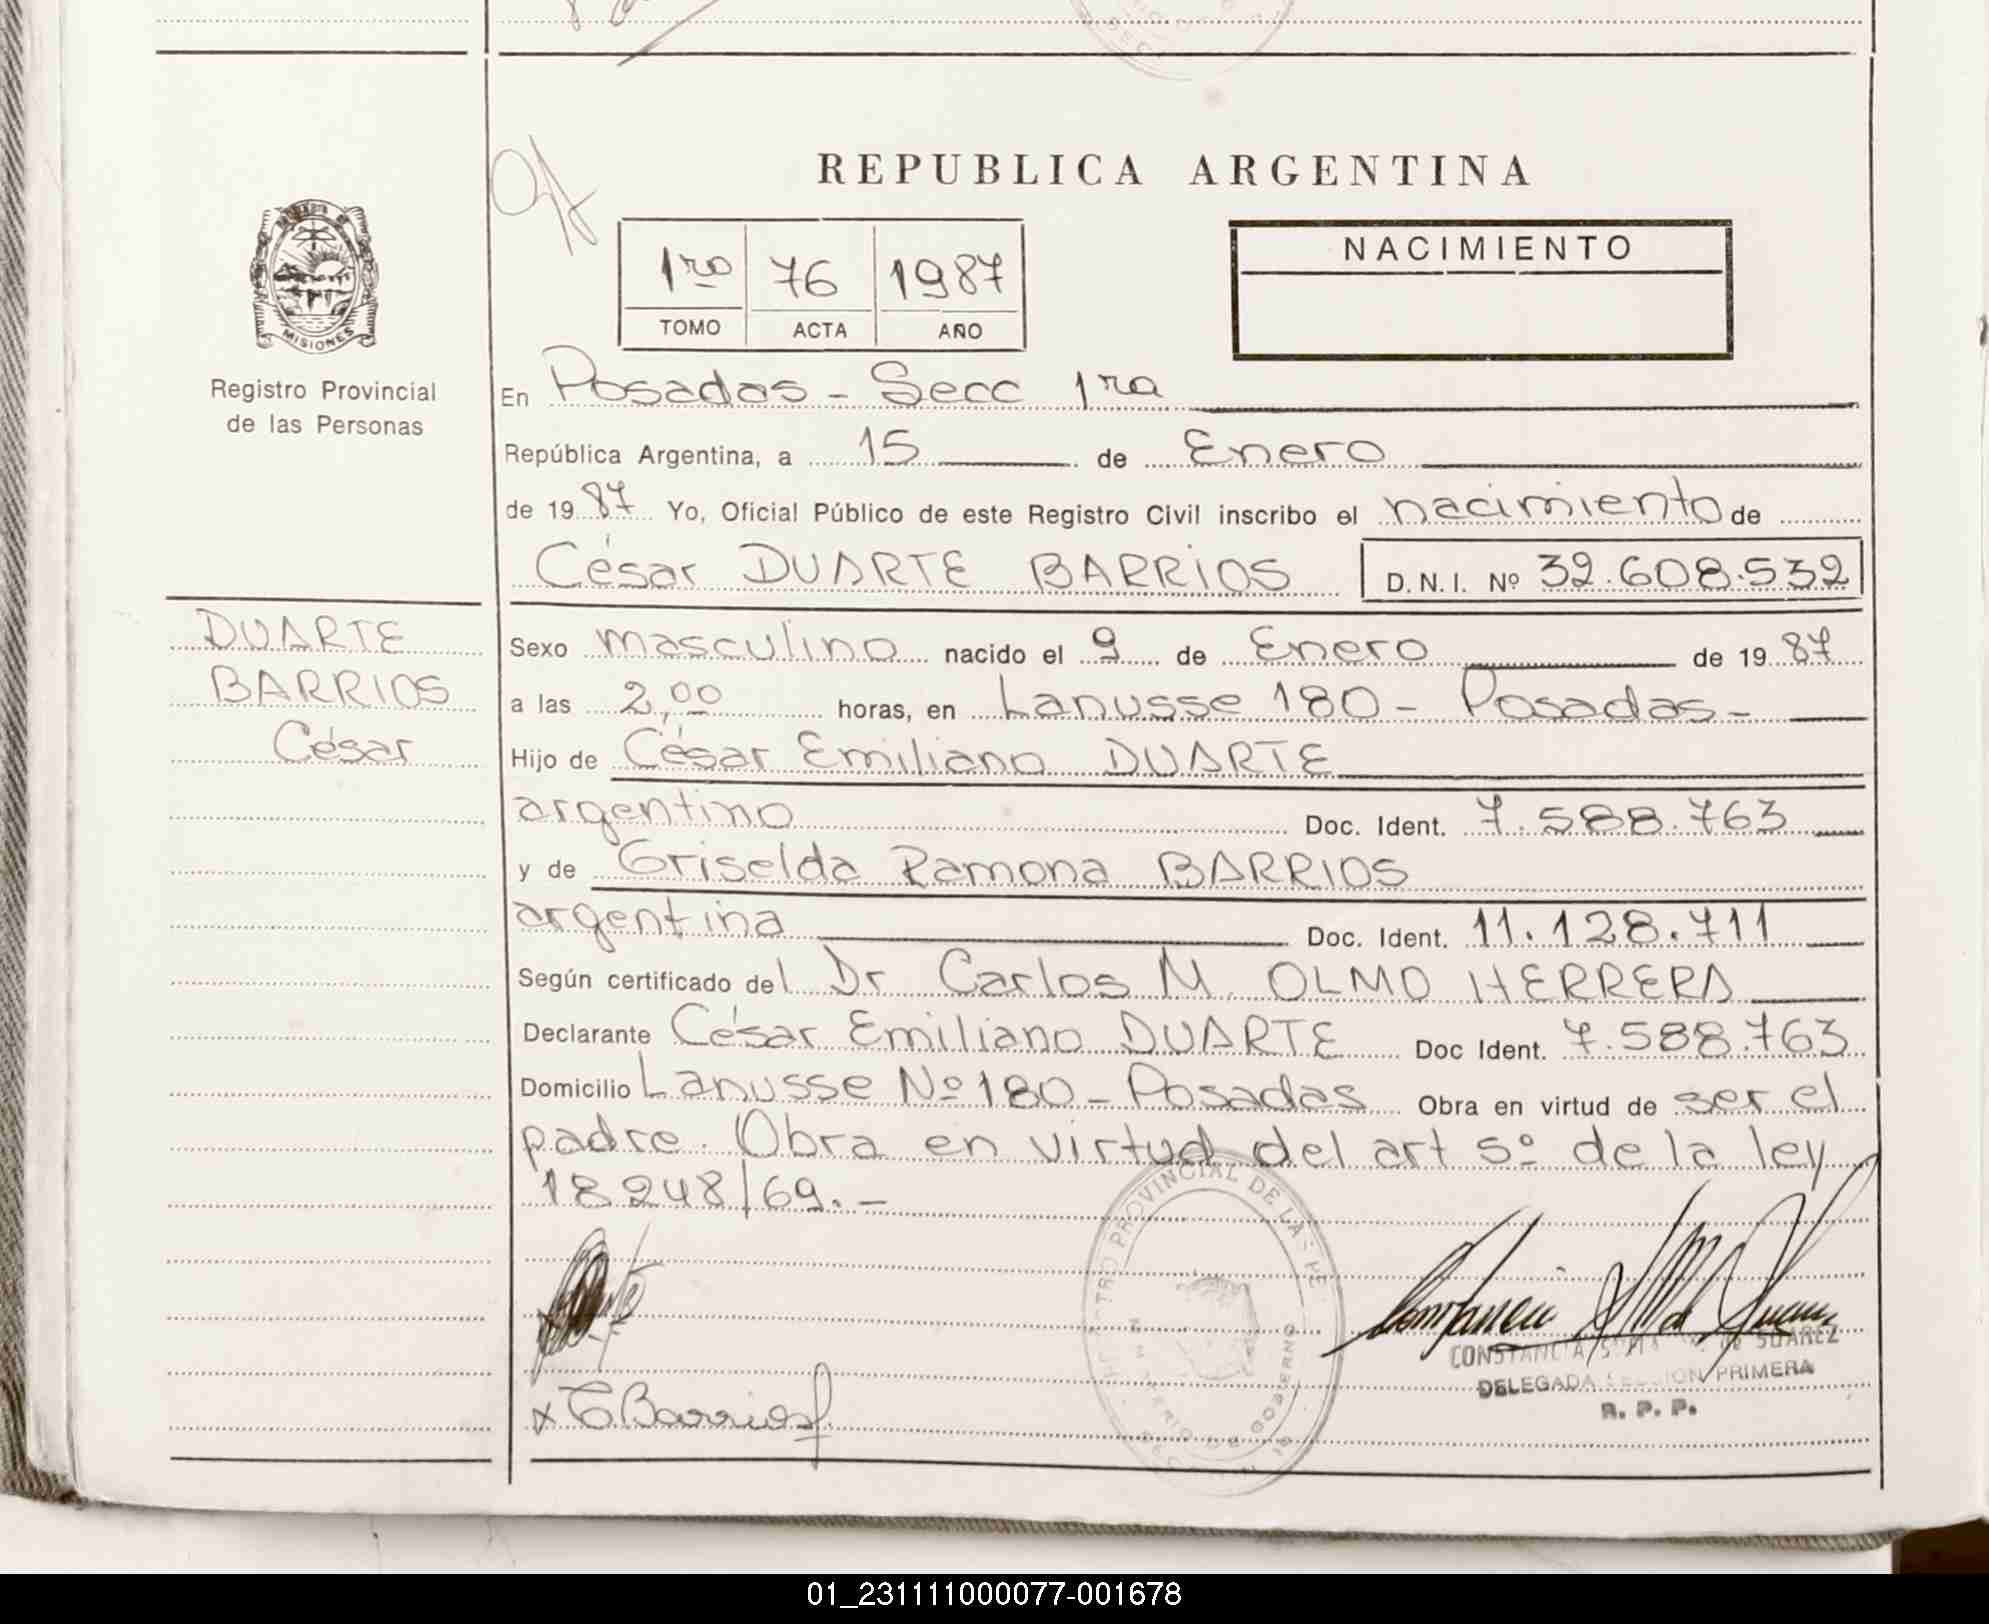 REPUBLICA ARGENTINA
1ro 76 1987
TOMO ACTA AÑO
NACIMIENTO
MISIONES
Registro Provincial
de las Personas
En Posadas - Secc 1ra
República Argentina, a 15 de Enero
de 1987 Yo, Oficial Público de este Registro Civil inscribo el nacimiento de
César DUARTE BARRIOS D.N.I. Nº 32.608.532
DUARTE
BARRIOS
César
Sexo masculino nacido el 9 de Enero de 1987
a las 2,00 horas, en Lanusse 180 - Posadas -
Hijo de César Emiliano DUARTE
argentino Doc. Ident. 7.588.763
y de Griselda Ramona BARRIOS
argentina Doc. Ident. 11.128.711
Según certificado del Dr Carlos M. OLMO HERRERA
Declarante César Emiliano DUARTE Doc Ident. 7.588.763
Domicilio Lanusse Nº 180 - Posadas Obra en virtud de ser el
padre. Obra en virtud del art 5º de la ley
18248/69. -
PROVINCIAL DE LAS PE
GOBIERNO
CONSTANCIA de SUAREZ
DELEGADA SECCION PRIMERA
R. P. P.
x Barrios
01_231111000077-001678